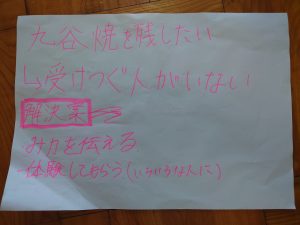 九谷焼を残したい
↳受けつぐ人がいない
解決案
みカを伝える
体験してもらう(いろいろな人に)